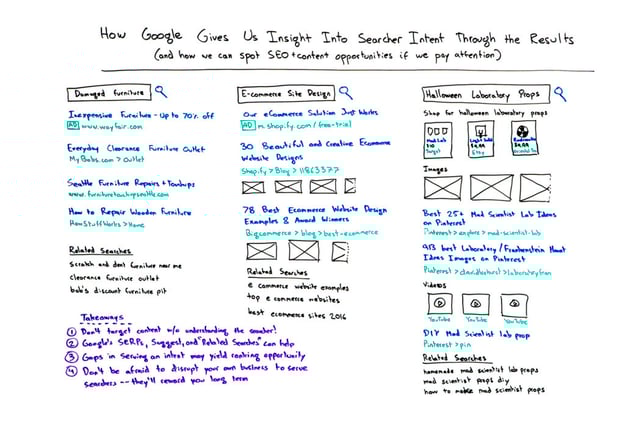 How Google Gives Us Insight Into Searcher Intent Through the Results
(and how we can spot SEO + content opportunities if we pay attention)
Damaged Furniture
Inexpensive Furniture - Up to 70% off
AD www.wayfair.com
Everyday Clearance Furniture Outlet
MyBobs.com > Outlet
Seattle Furniture Repairs + Touchups
www.furnituretouchupseattle.com
How to Repair Wooden Furniture
HowStuffWorks > Home
Related Searches
scratch and dent furniture near me
clearance furniture outlet
bob's discount furniture pit
E-commerce Site Design
Our eCommerce Solution Just Works
AD m.shopify.com/free-trial
30 Beautiful and Creative Ecommerce
Website Designs
Shopify > Blog > 11863377
78 Best Ecommerce Website Design
Examples & Award Winners
Bigcommerce > blog > best-ecommerce
Related Searches
e commerce website examples
top e commerce websites
best ecommerce sites 2016
Halloween Laboratory Props
Shop for halloween laboratory props
Mad Lab
$10
Target
$4.99
Etsy
$4.99
Images
Best 25+ Mad Scientist Lab Ideas
on Pinterest
Pinterest > explore > mad-scientist-lab
913 best Laboratory/Frankenstein Haunt
Ideas Images on Pinterest
Pinterest > davidlachurst > laboratoryfran
Videos
YouTube
YouTube
YouTube
DIY Mad Scientist lab prop
Pinterest > pin
Related Searches
homemade mad scientist lab props
mad scientist props diy
how to make mad scientist props
Takeaways
1 Don't target content w/o understanding the searcher!
2 Google's SERPs, Suggest, and "Related Searches" can help
3 Gaps in serving an intent may yield ranking opportunity
4 Don't be afraid to disrupt your own business to serve
searchers -- they'll reward you long term